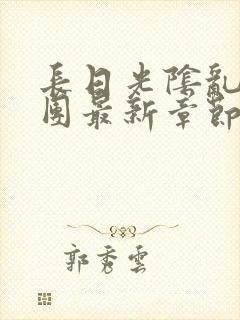 長日光陰亂
團最新章節
郭秀雲